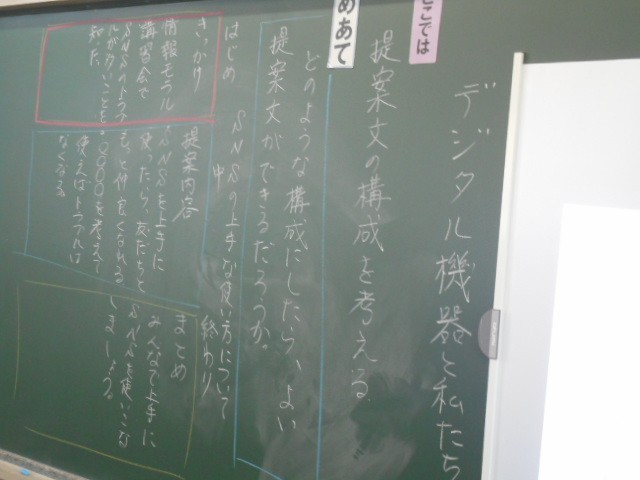 デジタル機器と私たち
ここでは
提案文の構成を考える。
めあて
どのような構成にしたら、よい
提案文ができるだろうか。
SNSの上手な使い方について
はじめ
中
終わり
きっかけ
情報モラル
講習会で
SNSのトラブ
ルが多いことを
知った。
提案内容
SNSを上手に
使ったら、友だちと
もっと仲良くなれる。
○○○○を考えて
使えばトラブルは
なくなる。
まとめ
みんなで上手に
SNSを使いこな
しましょう。